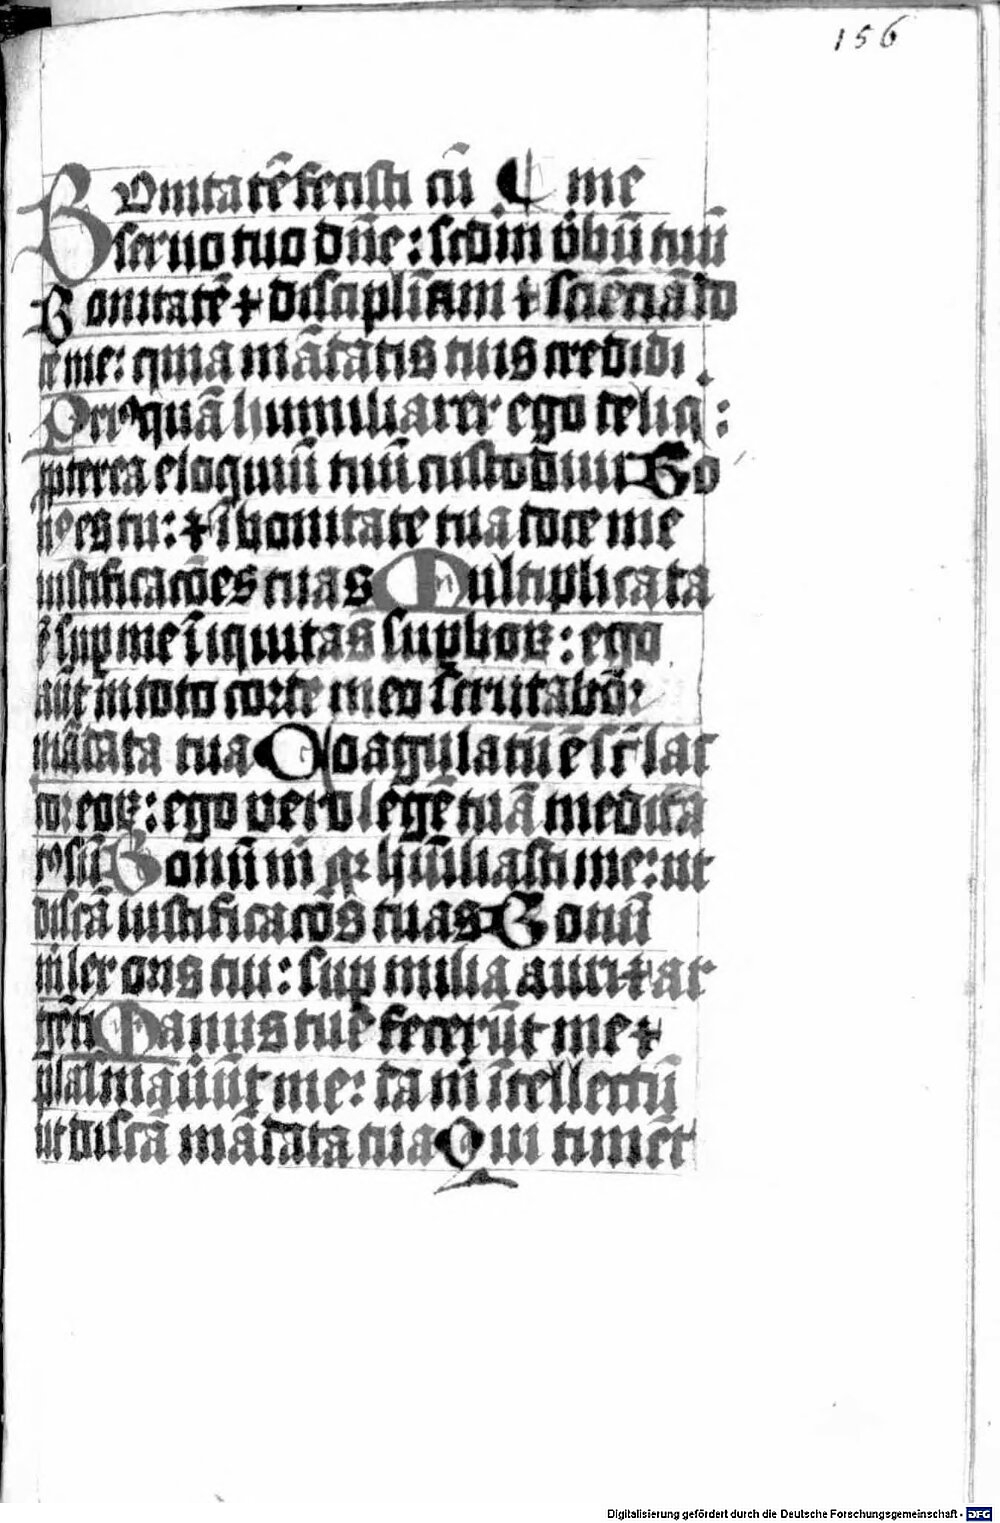 156
Bonitatē fecisti cū ℂ me
seruo tuo dn̄e: scd̄m v̓bū tuū
Bonitatē ⁊ disciplīam ⁊ sciēciā do
ce me: quia mādatis tuis credidi
Priꝰquā humiliarer ego deliq̄:
ꝓpterea eloquiū tuū custodiui Bo
nꝰ es tu: ⁊ ī bonitate tua doce me
iustificacōes tuas Multiplicata
ē sup me īiquitas supboꝝ: ego
aūt in toto corde meo scrutabor
mādata tua Coagulatū ē sic̄ lac
cor eoꝝ: ego vero legē tuā medita
tꝰ sū Bonū m̄ qꝛ hūiliasti me: ut
discā iustificacōs tuas Bonū
m̄ lex oris tui: sup milia auri ⁊ ar
gēti Manus tue fecerūt me ⁊
plasmauūt me: da m̄ ītellectū
ut discā mādata tua Qui timēt
Digitalisierung gefördert durch die Deutsche Forschungsgemeinschaft - DFG